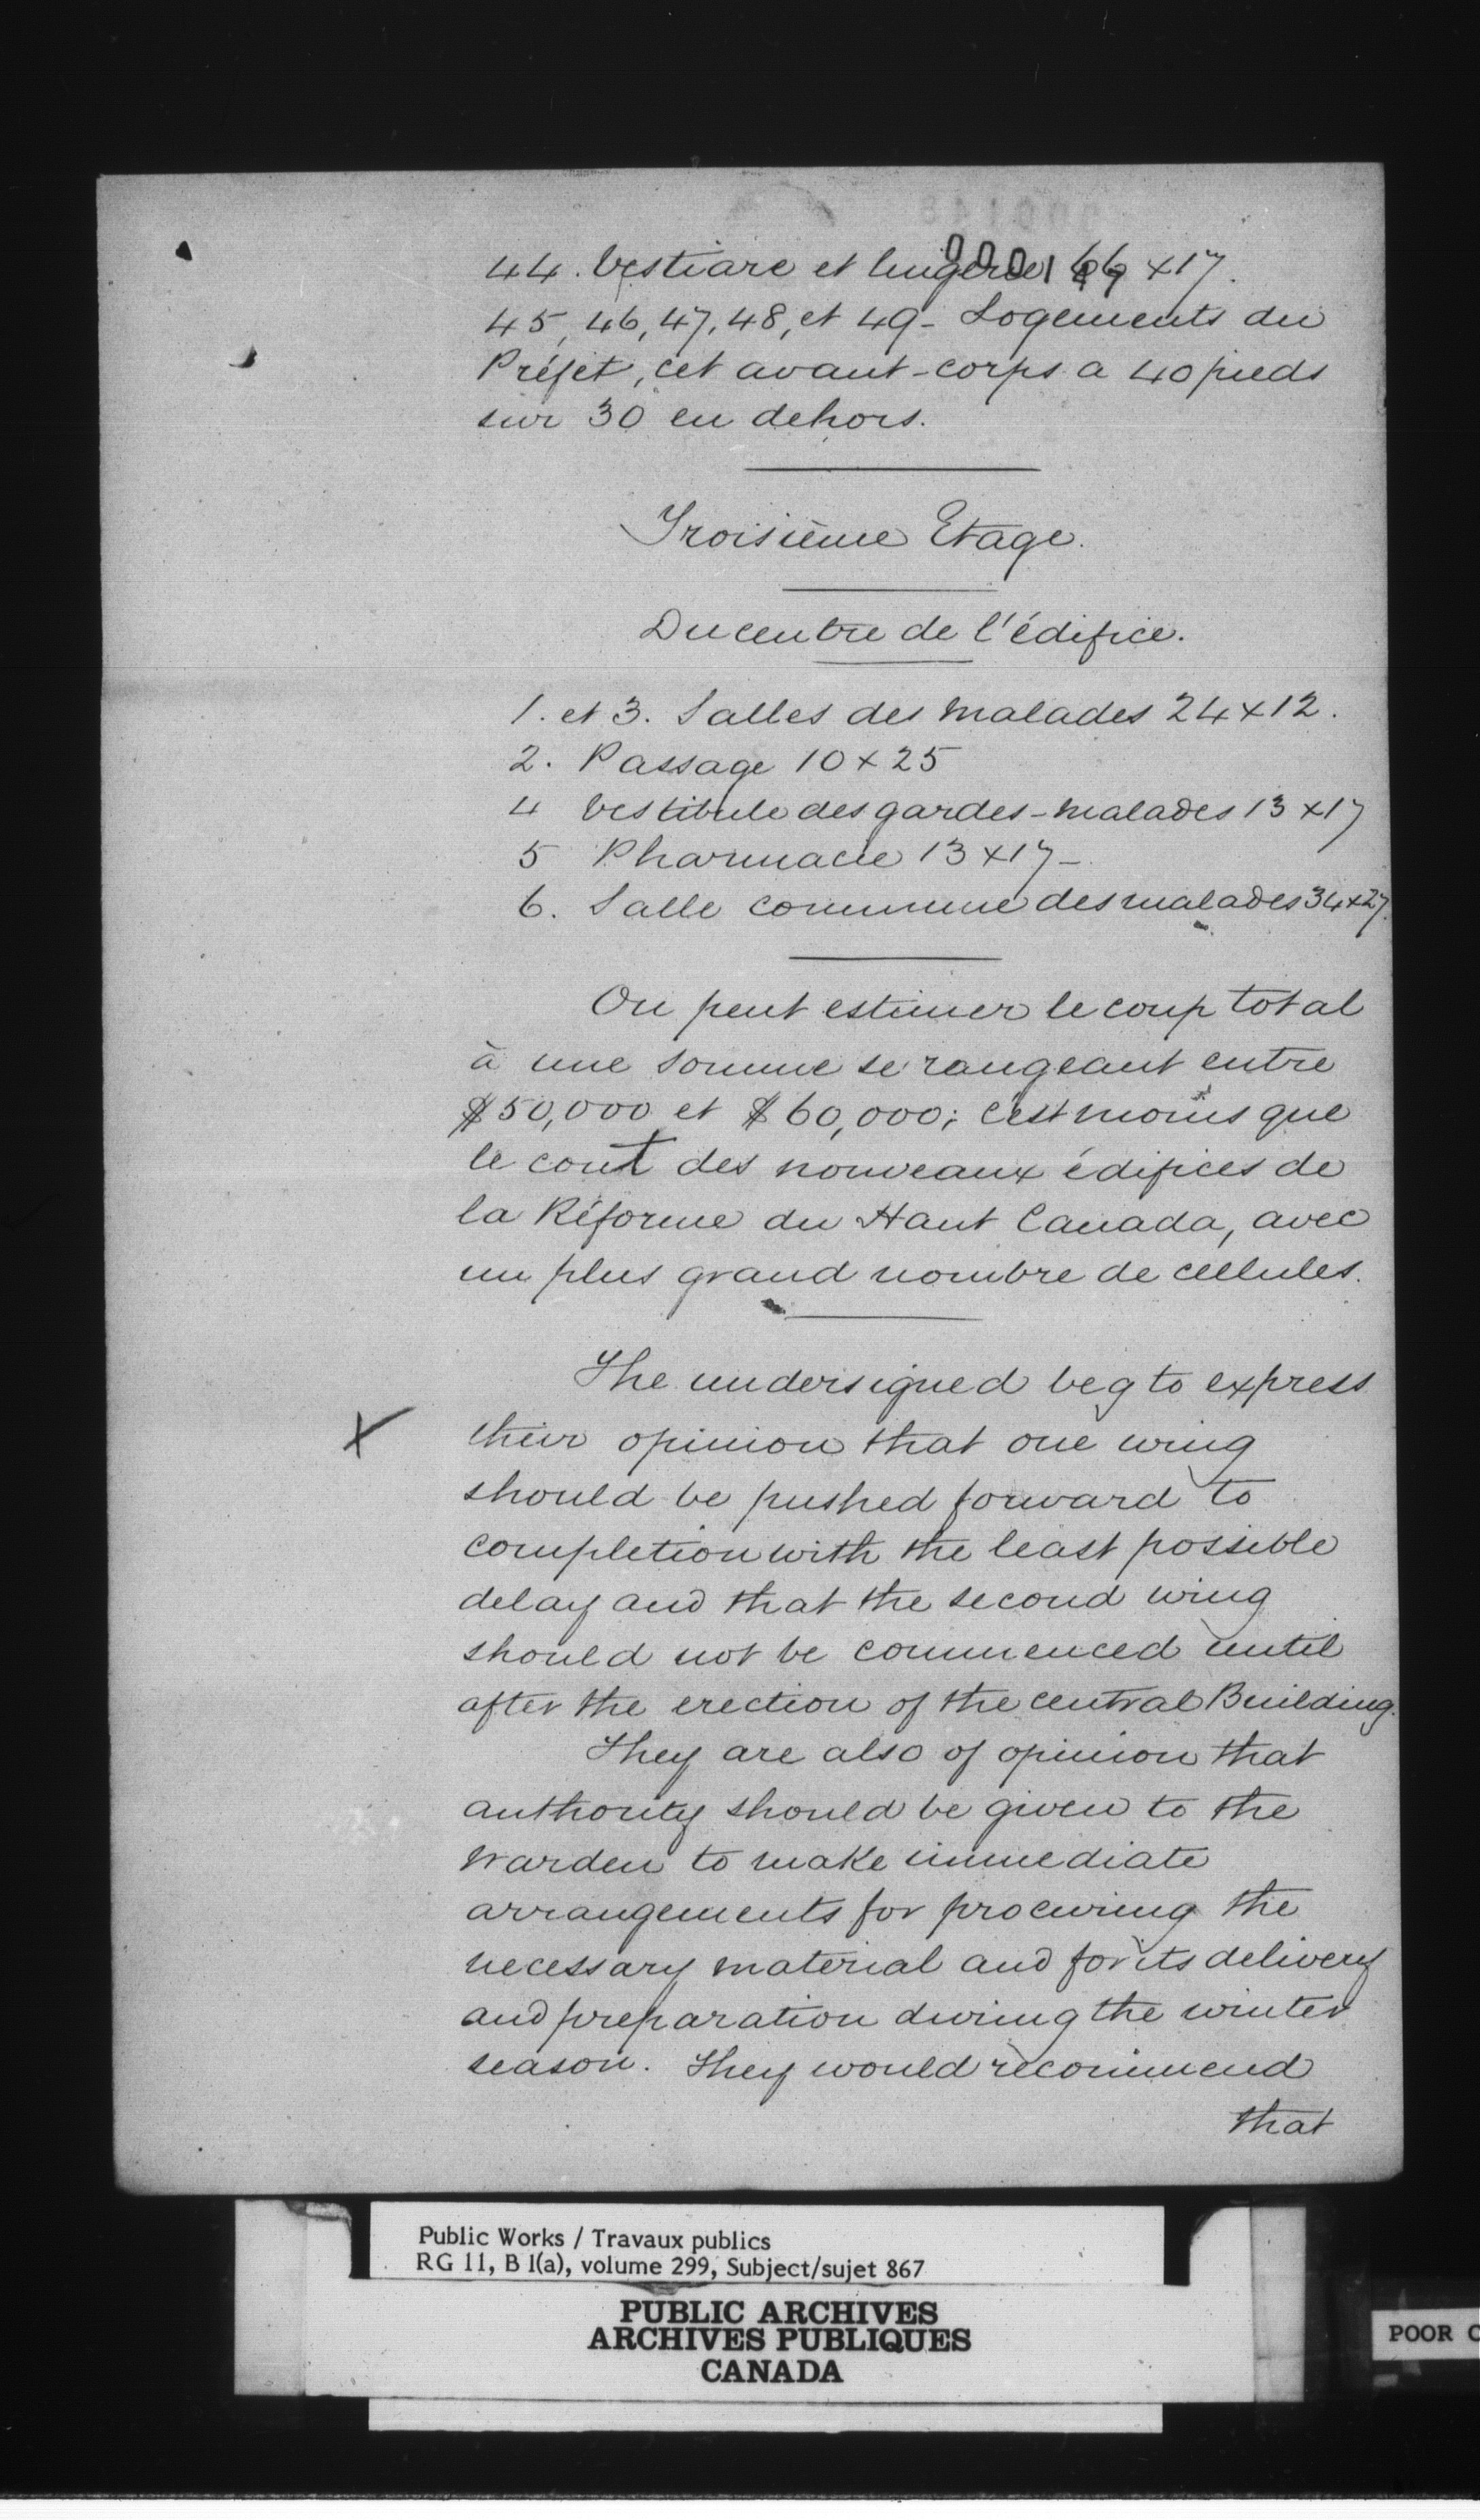 44. Vestiare et lingerie 66 x 17.
45, 46, 47, 48, et 49 - Logements du
Préfet, cet avant-corps a 40 pieds
sur 30 en dehors.
Troisième Etage.
Du centre de l'édifice.
1. et 3. Salles des malades 24 x 12.
2. Passage 10 x 25
4 Vestibule des gardes-malades 13 x 17
5 Pharmacie 13 x 17 -
6. Salle commune des malades 34 x 27.
On peut estimer le coup total
à une somme se rangeant entre
$50,000 et $60,000; c'est moins que
le cout des nouveaux édifices de
la Réforme du Haut Canada, avec
un plus grand nombre de cellules.
The undersigned beg to express
X their opinion that one wing
should be pushed forward to
completion with the least possible
delay and that the second wing
should not be commenced until
after the erection of the central Building.
They are also of opinion that
authority should be given to the
Warden to make immediate
arrangements for procuring the
necessary material and for its delivery
and preparation during the winter
season. They would recommend
that
Public Works / Travaux publics
RG 11, B 1(a), volume 299, Subject/sujet 867
PUBLIC ARCHIVES
ARCHIVES PUBLIQUES
CANADA
POOR